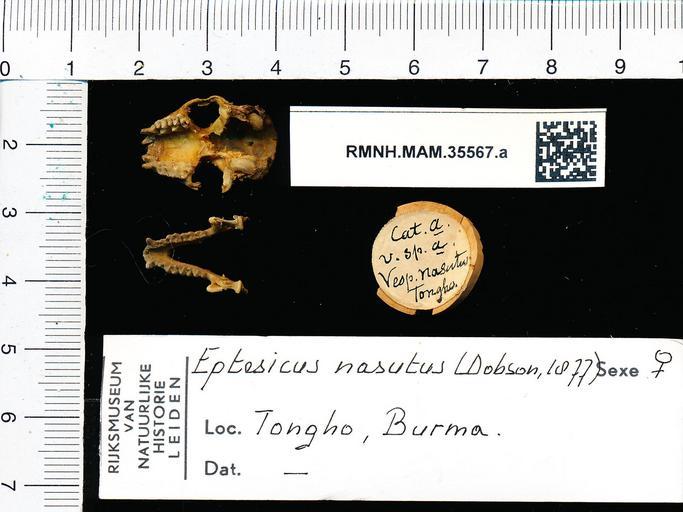 0 1 2 3 4 5 6 7 8 9 1
2
3
4
5
6
7
RMNH.MAM.35567.a
Cat. a.
v. sp. a.
Vesp. nasutus
Tongho.
RIJKSMUSEUM
VAN
NATUURLIJKE
HISTORIE
LEIDEN
Eptesicus nasutus (Dobson, 1877) Sexe ♀
Loc. Tongho, Burma.
Dat. —